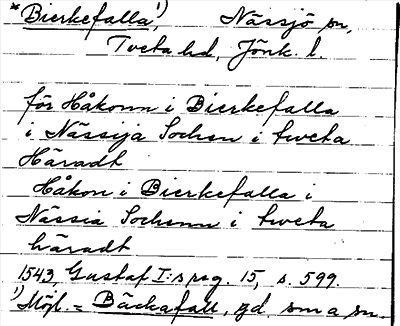 *Bierkefalla ¹) Nässjö sn,
Tveta hd, Jönk. l.
för Håkonn i Bierkefalla
i Nässija Sochen i tweta
Häradt
Håkon i Bierkefalla i
Nässia Sochenn i tweta
häradt
1543, Gustaf I:s reg. 15, s. 599.
¹) Möjl. = Bäckafall, gd. sm a sn.